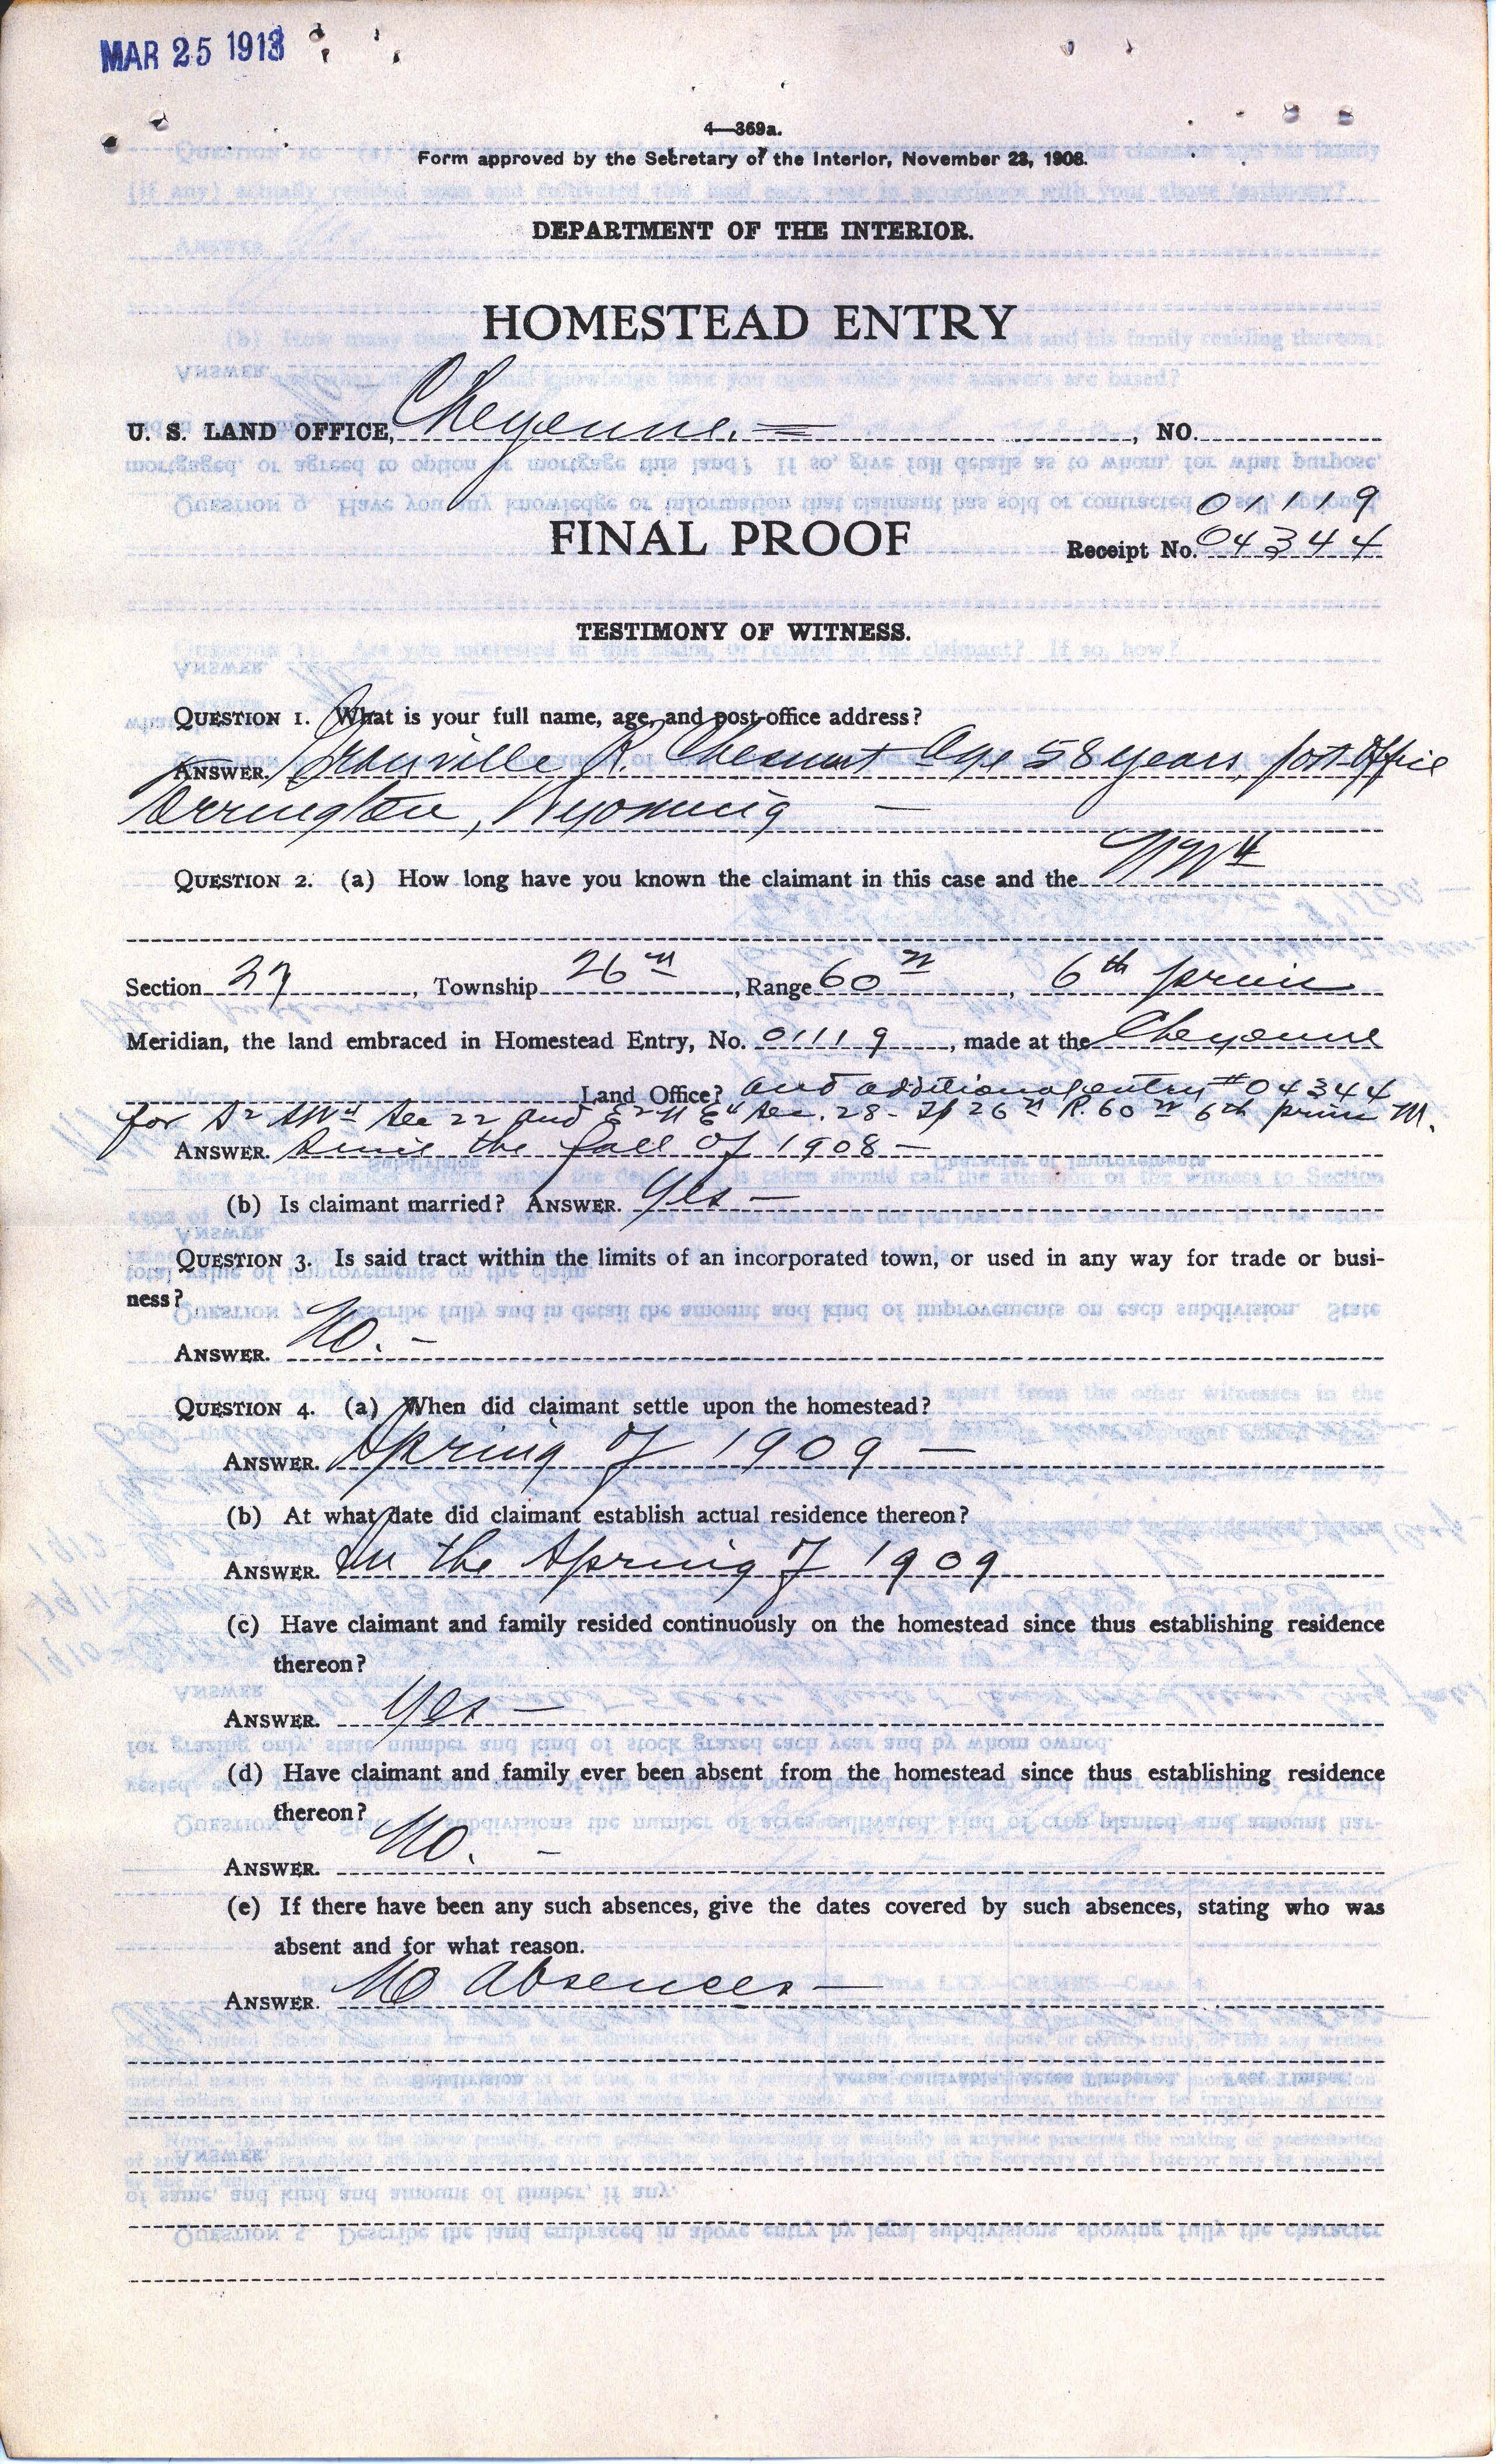 MAR 25 1913
4—369a.
Form approved by the Secretary of the Interior, November 23, 1908.
DEPARTMENT OF THE INTERIOR.
HOMESTEAD ENTRY
U. S. LAND OFFICE, Cheyenne. , NO.
01119
FINAL PROOF Receipt No. 04344
TESTIMONY OF WITNESS.
QUESTION 1. What is your full name, age, and post-office address?
ANSWER. Granville R. Chesnut Age 58 years, post office
Torrington, Wyoming —
QUESTION 2. (a) How long have you known the claimant in this case and the NW4
Section 27, Township 26 n, Range 60 , 6th prin
Meridian, the land embraced in Homestead Entry, No. 01119, made at the Cheyenne
Land Office? and additional entry #04344
for S2 SW4 Sec 22 and E2 N E4 Sec. 28 - Tp 26 n R. 60 6th prin M.
ANSWER. Since the fall of 1908 —
(b) Is claimant married? ANSWER. Yes —
QUESTION 3. Is said tract within the limits of an incorporated town, or used in any way for trade or busi-
ness?
ANSWER. No. —
QUESTION 4. (a) When did claimant settle upon the homestead?
ANSWER. Spring of 1909 —
(b) At what date did claimant establish actual residence thereon?
ANSWER. In the Spring of 1909
(c) Have claimant and family resided continuously on the homestead since thus establishing residence
thereon?
ANSWER. Yes —
(d) Have claimant and family ever been absent from the homestead since thus establishing residence
thereon?
ANSWER. No. —
(e) If there have been any such absences, give the dates covered by such absences, stating who was
absent and for what reason.
ANSWER. No absences —